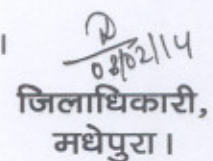 ।
08/02/14
जिलाधिकारी,
मधेपुरा।